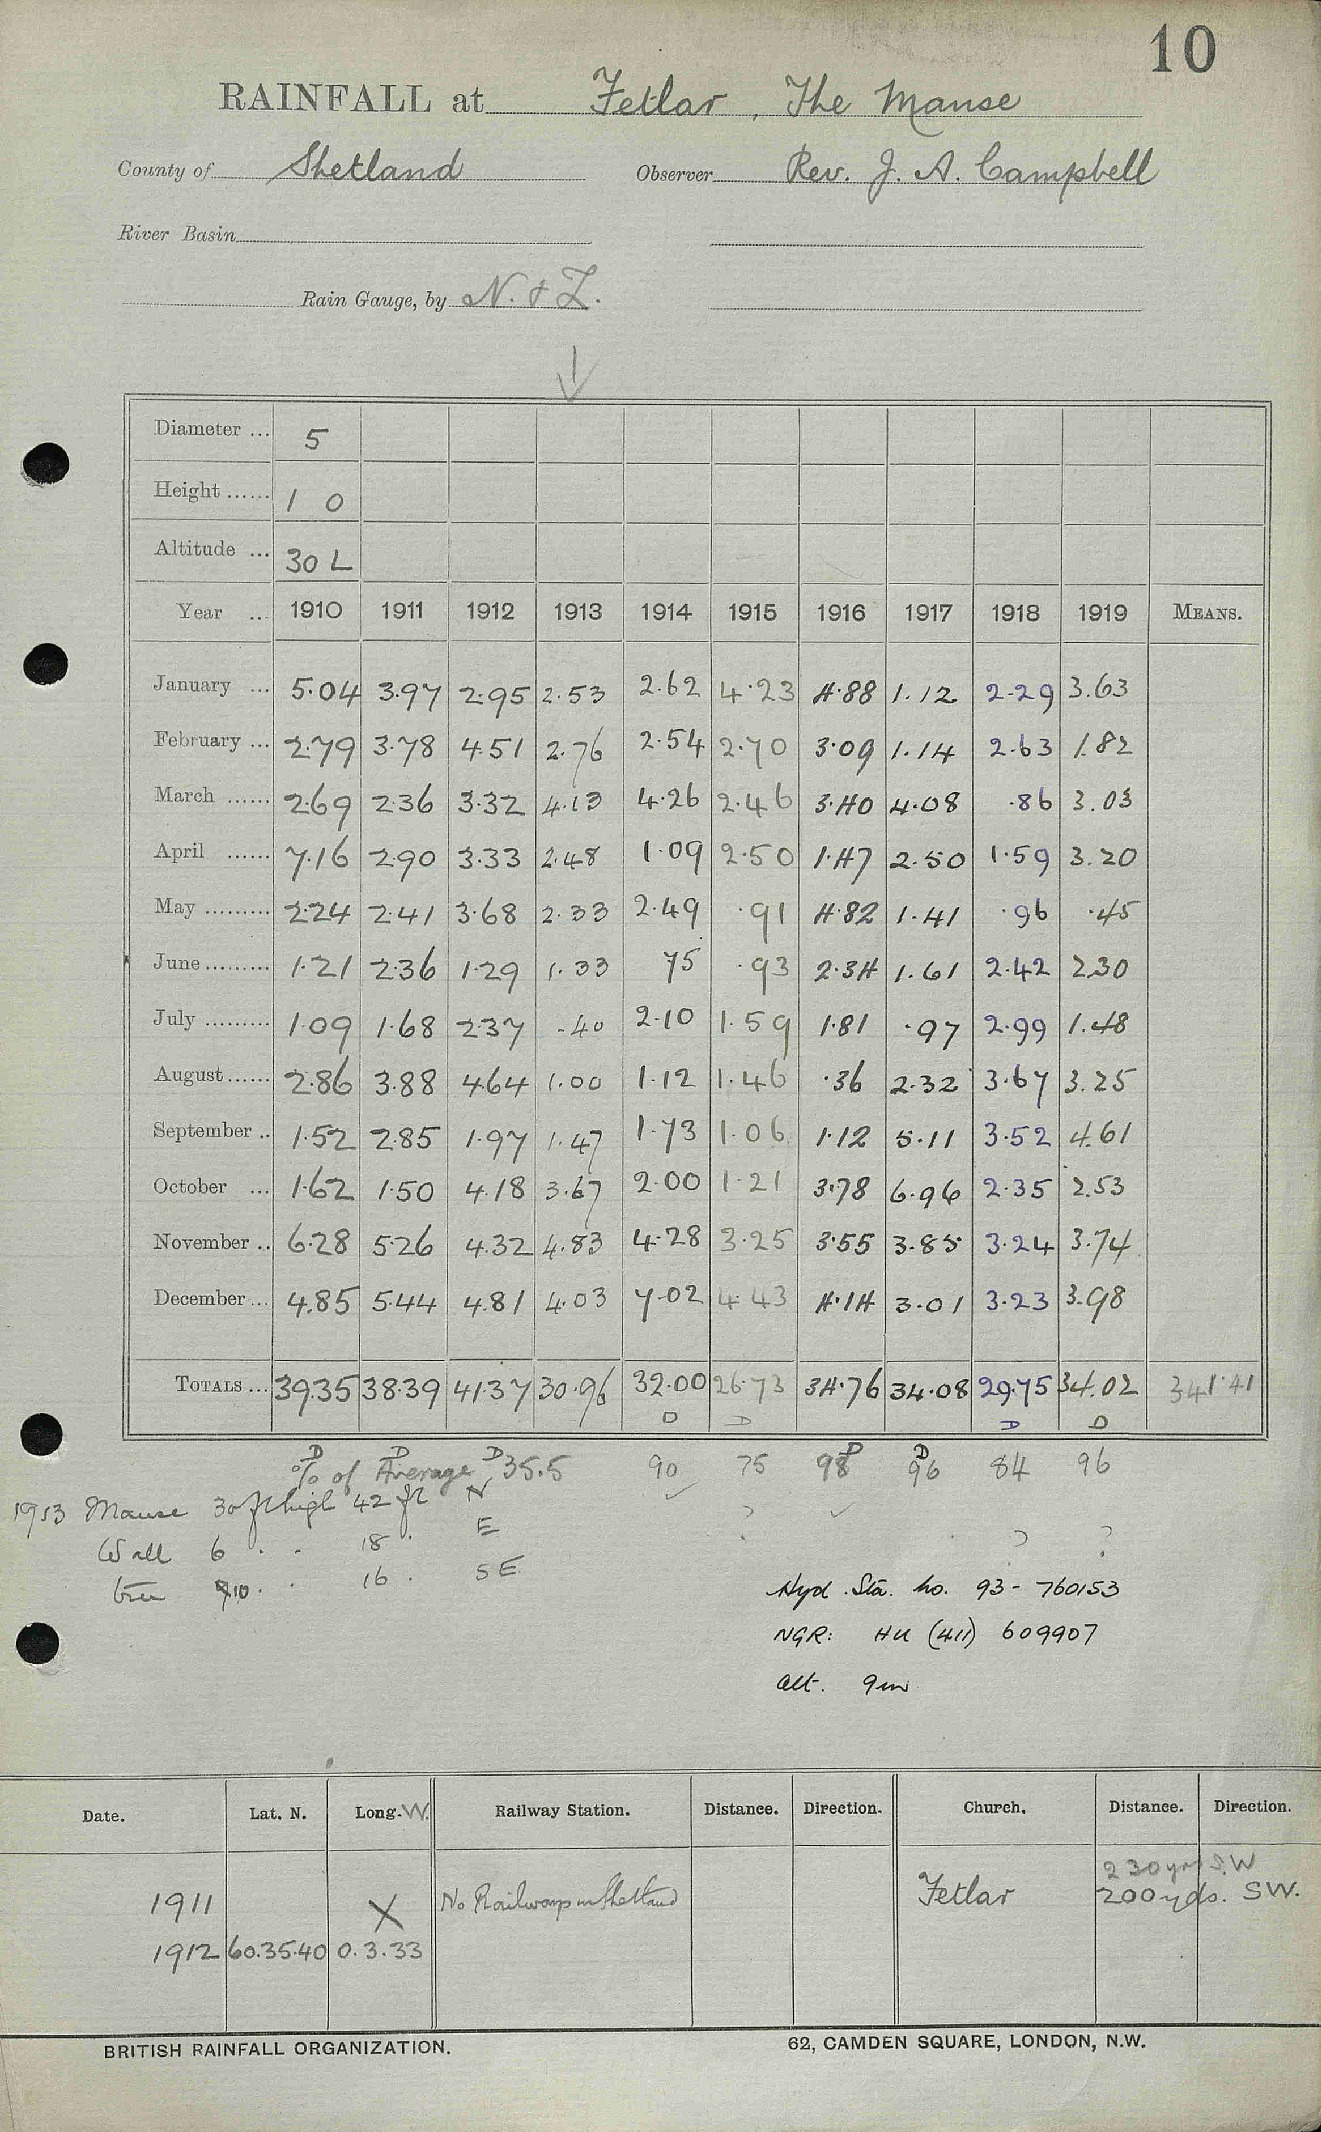 10
RAINFALL at Fetlar, The Manse
County of Shetland Observer Rev. J. A. Campbell
River Basin
Rain Gauge, by N. & Z.
Diameter ... 5
Height ...... 1 0
Altitude ... 30 L
Year ... 1910 1911 1912 1913 1914 1915 1916 1917 1918 1919 MEANS.
January ... 5.04 3.97 2.95 2.53 2.62 4.23 4.88 1.12 2.29 3.63
February ... 2.79 3.78 4.51 2.76 2.54 2.70 3.09 1.14 2.63 1.82
March ...... 2.69 2.36 3.32 4.13 4.26 2.46 3.40 4.08 .86 3.03
April ...... 7.16 2.90 3.33 2.48 1.09 2.50 1.47 2.50 1.59 3.20
May ......... 2.24 2.41 3.68 2.33 2.49 .91 4.82 1.41 .96 .45
June ......... 1.21 2.36 1.29 1.33 .75 .93 2.34 1.61 2.42 2.30
July ......... 1.09 1.68 2.37 .40 2.10 1.59 1.81 .97 2.99 1.48
August ...... 2.86 3.88 4.64 1.00 1.12 1.46 .36 2.32 3.67 3.25
September .. 1.52 2.85 1.97 1.47 1.73 1.06 1.12 5.11 3.52 4.61
October ... 1.62 1.50 4.18 3.67 2.00 1.21 3.78 6.96 2.35 2.53
November .. 6.28 5.26 4.32 4.83 4.28 3.25 3.55 3.85 3.24 3.74
December ... 4.85 5.44 4.81 4.03 7.02 4.43 4.14 3.01 3.23 3.98
TOTALS ... 39.35 38.39 41.37 30.96 32.00 26.73 34.76 34.08 29.75 34.02 341.41
D D D D
D D D D D
% of Average 35.5 90 75 98 96 84 96
1913 Manse 30 ft high 42 ft N
? ? ?
Wall 6 . . 18 . E
tree 10 . . 16 . SE
Hyd. Sta. No. 93 - 760153
NGR: HU (411) 609907
alt. 9m
Date. Lat. N. Long. W. Railway Station. Distance. Direction. Church. Distance. Direction.
230 yds S.W
1911 X No Railways in Shetland Fetlar 200 yds. SW.
1912 60.35.40 0.3.33
BRITISH RAINFALL ORGANIZATION. 62, CAMDEN SQUARE, LONDON, N.W.